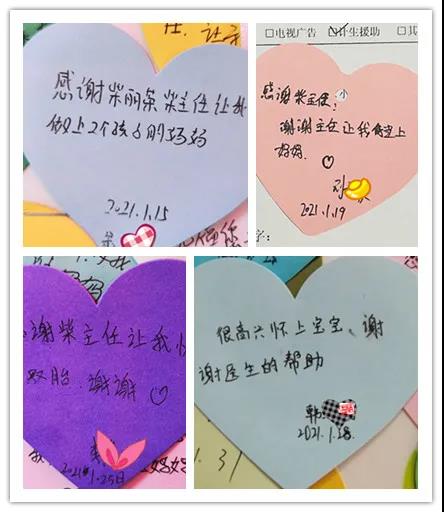 感谢柴丽荣柴主任让我
做上2个孩子的妈妈
2021.1.15
□电视广告 ☑计生援助 □其
感谢柴主任,
谢谢主任让我做上
妈妈.
孙
2021.1.19
谢柴主任让我怀
双胎.谢谢
2021年1.25日
很高兴怀上宝宝、谢
谢医生的帮助
韩
2021.1.28.